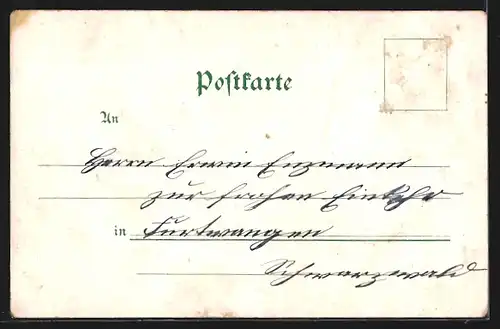 Postkarte
An
Herrn Erwin Enzmann
zur frohen Einkehr
in Furtwangen
Schwarzwald